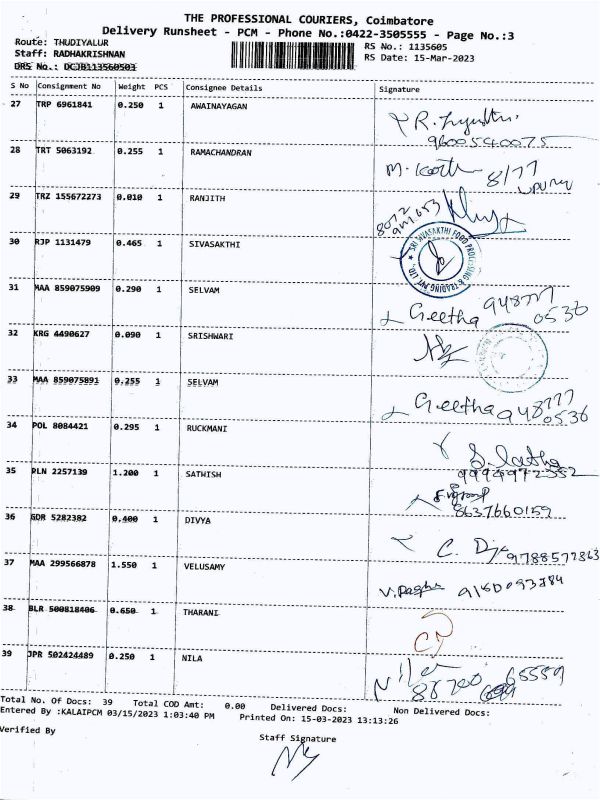 THE PROFESSIONAL COURIERS, Coimbatore
Delivery Runsheet - PCM - Phone No.:0422-3505555 - Page No.:3
Route: THUDIYALUR
RS No.: 1135605
Staff: RADHAKRISHNAN
RS Date: 15-Mar-2023
DRS No.: DCJB113560503
S No Consignment No Weight PCS Consignee Details Signature
27 TRP 6961841 0.250 1 AWAINAYAGAN
9600540075
28 TRT 5063192 0.255 1 RAMACHANDRAN
29 TRZ 155672273 0.010 1 RANJITH
30 RJP 1131479 0.465 1 SIVASAKTHI
31 MAA 859075909 0.290 1 SELVAM
Geetha 948777
0536
32 KRG 4490627 0.090 1 SRISHWARI
33 MAA 859075891 0.255 1 SELVAM
Geetha 948777
0536
34 POL 8084421 0.295 1 RUCKMANI
S. Latha
35 PLN 2257139 1.200 1 SATHISH
8637660159
36 GDR 5282382 0.400 1 DIVYA
37 MAA 299566878 1.550 1 VELUSAMY
38 BLR 500818406 0.650 1 THARANI
39 JPR 502424489 0.250 1 NILA
Total No. Of Docs: 39 Total COD Amt: 0.00 Delivered Docs: Non Delivered Docs:
Entered By :KALAIPCM 03/15/2023 1:03:40 PM Printed On: 15-03-2023 13:13:26
Verified By
Staff Signature